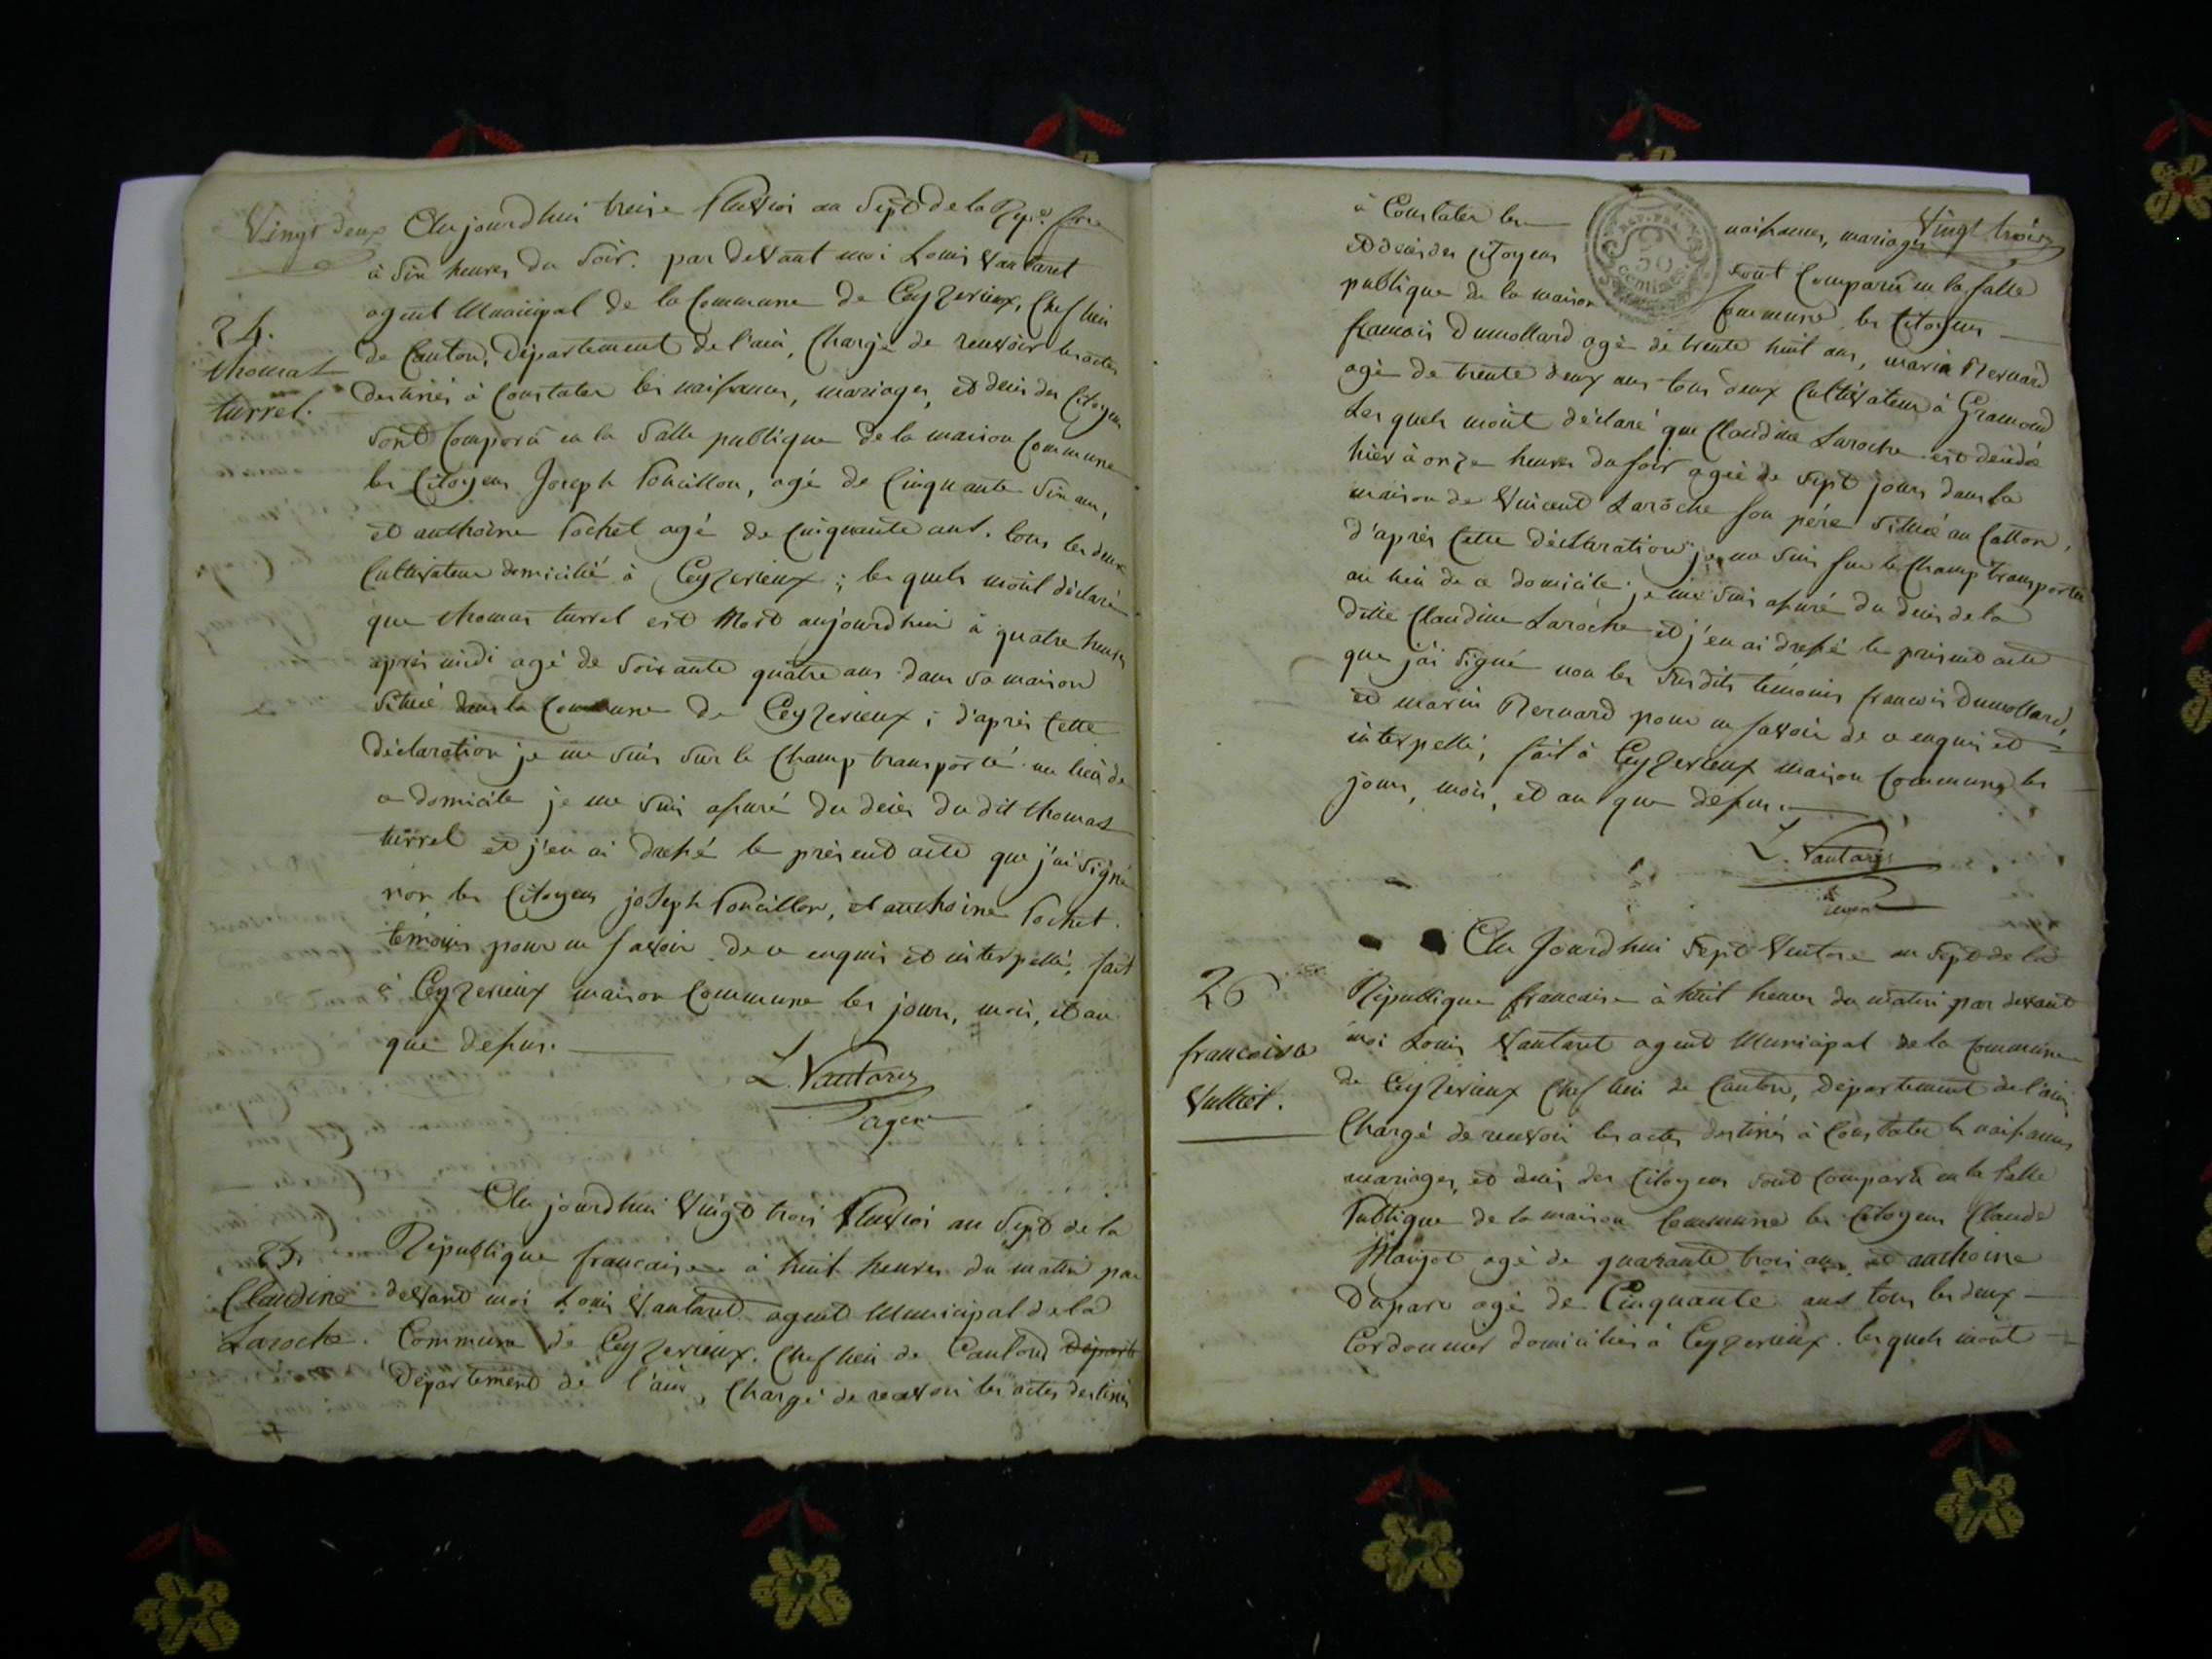 Vingt deux
Au jourdhui treize Pluviose an Sept de la Rép.e fse
à Six heures du Soir. par devant moi Louis Vautaret
agent Municipal de la Commune de Ceyzerieux, Chef lieu
de Canton, Département de l'ain, Chargé de recevoir les actes
destinés à Constater les naissances, mariages, et deces des Citoyens
Sont Comparû en la Salle publique de la maison Commune
les Citoyens Joseph Poncillon, agé de Cinquante Six ans,
et anthoine Pochet agé de Cinquante ans. tous les deux
Cultivateur domicilié à Ceyzerieux ; les quels mont déclaré
que thomas turrel est Mort aujourdhui à quatre heures
après midi agé de Soixante quatre ans dans sa maison
Situeé dans la Commune de Ceyzerieux ; d'après Cette
déclaration je me Suis Sur le Champ transporté au lieu de
ce domicile je me Suis assuré du deces du dit thomas
turrel et j'en ai dressé le present acte que j'ai Signé
non les Citoyens joseph Poncillon, et anthoine Pochet.
témoins pour ne Savoir de ce enquis et interpellé, fait
à Ceyzerieux maison Commune les jours, mois, et an
que dessus.
L. Vautaret
agent
24.
thomas
turrel.
Au jourdhui Vingt trois Pluviose an Sept de la
République francaise à huit heures du matin par
devant moi Louis Vautaret agent Municipal de la
Commune de Ceyzerieux. Chef lieu de Canton Départe
Département de l'ain, Chargé de recevoir les actes destinés
25.
Claudine
Laroche.
Vingt trois
à Constater les naissances, mariages
et deces des Citoyens Sont Comparû en la Salle
publique de la maison Commune, les Citoyens
francois Dumollard agé de trente huit ans, marin Bernard
agé de trente deux ans tous deux Cultivateur à Gramond
Les quels mont déclaré que Claudine Laroche est décédé
hièr à onze heures du Soir ageé de Sept jours dans la
maison de Vincent Laroche son pére Situeé au Catton,
d'après Cette déclaration je me Suis Sur le Champ transporté
au lieu de ce domicile je me Suis assuré du deces de la
ditte Claudine Laroche et j'en ai dressé le présent acte
que j'ai Signé non les Susdits témoins francois Dumollard,
et marin Bernard pour ne Savoir de ce enquis et
interpellé, fait à Ceyzerieux maison Commune les
jours, mois, et an que dessus.
L. Vautaret
Au Jourdhui Sept Ventose an Sept de la
République francaise à huit heures du matin par devant
moi Louis Vautaret agent Municipal de la Commune
de Ceyzerieux Chef lieu de Canton, Département de l'ain
Chargé de recevoir les actes destinés à Constater les naissances
mariages, et deces des Citoyens Sont Comparû en la Salle
Publique de la maison Commune les Citoyens Claude
Manjot agé de quarante trois ans, et anthoine
Duparc agé de Cinquante ans tous les deux
Cordonnier domiciliés à Ceyzerieux. les quels mont
26
francoise
Vulliet.
50
centimes